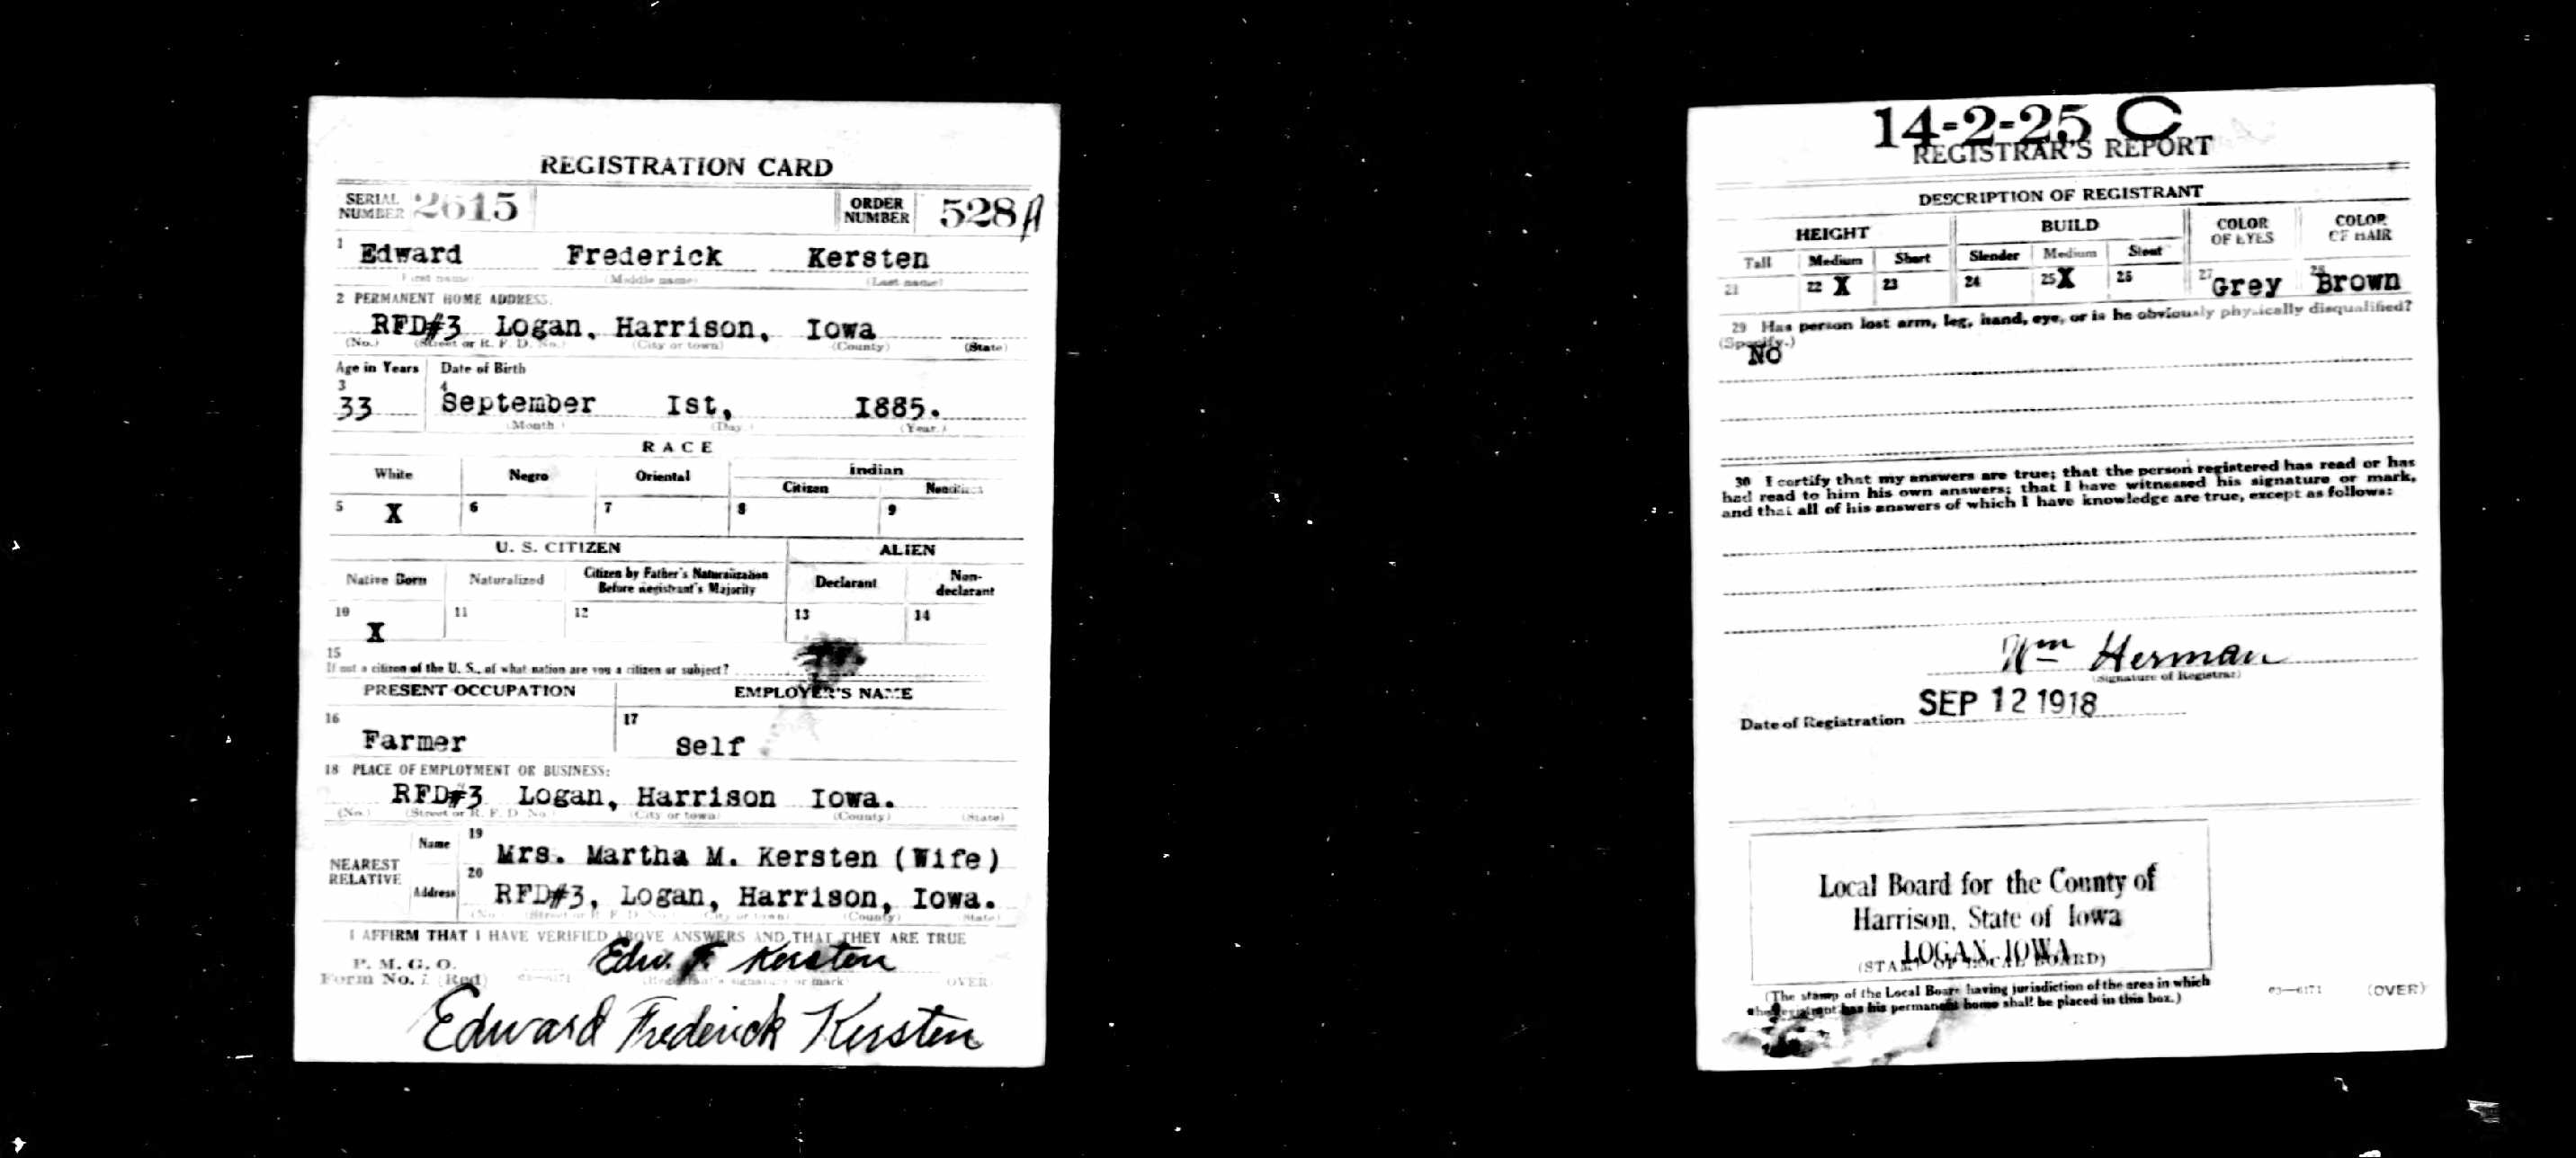 REGISTRATION CARD
SERIAL NUMBER 2615 ORDER NUMBER 528 A
1 Edward Frederick Kersten
(First name) (Middle name) (Last name)
2 PERMANENT HOME ADDRESS:
RFD#3 Logan, Harrison, Iowa
(No.) (Street or R. F. D. No.) (City or town) (County) (State)
Age in Years Date of Birth
3 4
33 September Ist, I885.
(Month.) (Day.) (Year.)
RACE
White Negro Oriental Indian
Citizen Noncitizen
5 X 6 7 8 9
U. S. CITIZEN ALIEN
Native Born Naturalized Citizen by Father's Naturalization Before Registrant's Majority Declarant Non-declarant
10 X 11 12 13 14
15
If not a citizen of the U. S., of what nation are you a citizen or subject?
PRESENT OCCUPATION EMPLOYER'S NAME
16 17
Farmer Self
18 PLACE OF EMPLOYMENT OR BUSINESS:
RFD#3 Logan, Harrison Iowa.
(No.) (Street or R. F. D. No.) (City or town) (County) (State)
NEAREST RELATIVE
Name 19 Mrs. Martha M. Kersten (Wife)
Address 20 RFD#3, Logan, Harrison, Iowa.
(No.) (Street or R. F. D. No.) (City or town) (County) (State)
I AFFIRM THAT I HAVE VERIFIED ABOVE ANSWERS AND THAT THEY ARE TRUE
P. M. G. O.
Form No. 1 (Red) 03—6171 Edw. F. Kersten
(Registrant's signature or mark) (OVER)
Edward Frederick Kersten
14-2-25 C
REGISTRAR'S REPORT
DESCRIPTION OF REGISTRANT
HEIGHT BUILD COLOR OF EYES COLOR OF HAIR
Tall Medium Short Slender Medium Stout
21 22 X 23 24 25 X 26 27 Grey 28 Brown
29 Has person lost arm, leg, hand, eye, or is he obviously physically disqualified?
(Specify.)
NO
30 I certify that my answers are true; that the person registered has read or has
had read to him his own answers; that I have witnessed his signature or mark,
and that all of his answers of which I have knowledge are true, except as follows:
Wm Herman
(Signature of Registrar)
Date of Registration SEP 12 1918
Local Board for the County of
Harrison, State of Iowa
LOGAN, IOWA
(STAMP OF LOCAL BOARD)
(The stamp of the Local Board having jurisdiction of the area in which
the registrant has his permanent home shall be placed in this box.)
03—6171 (OVER)